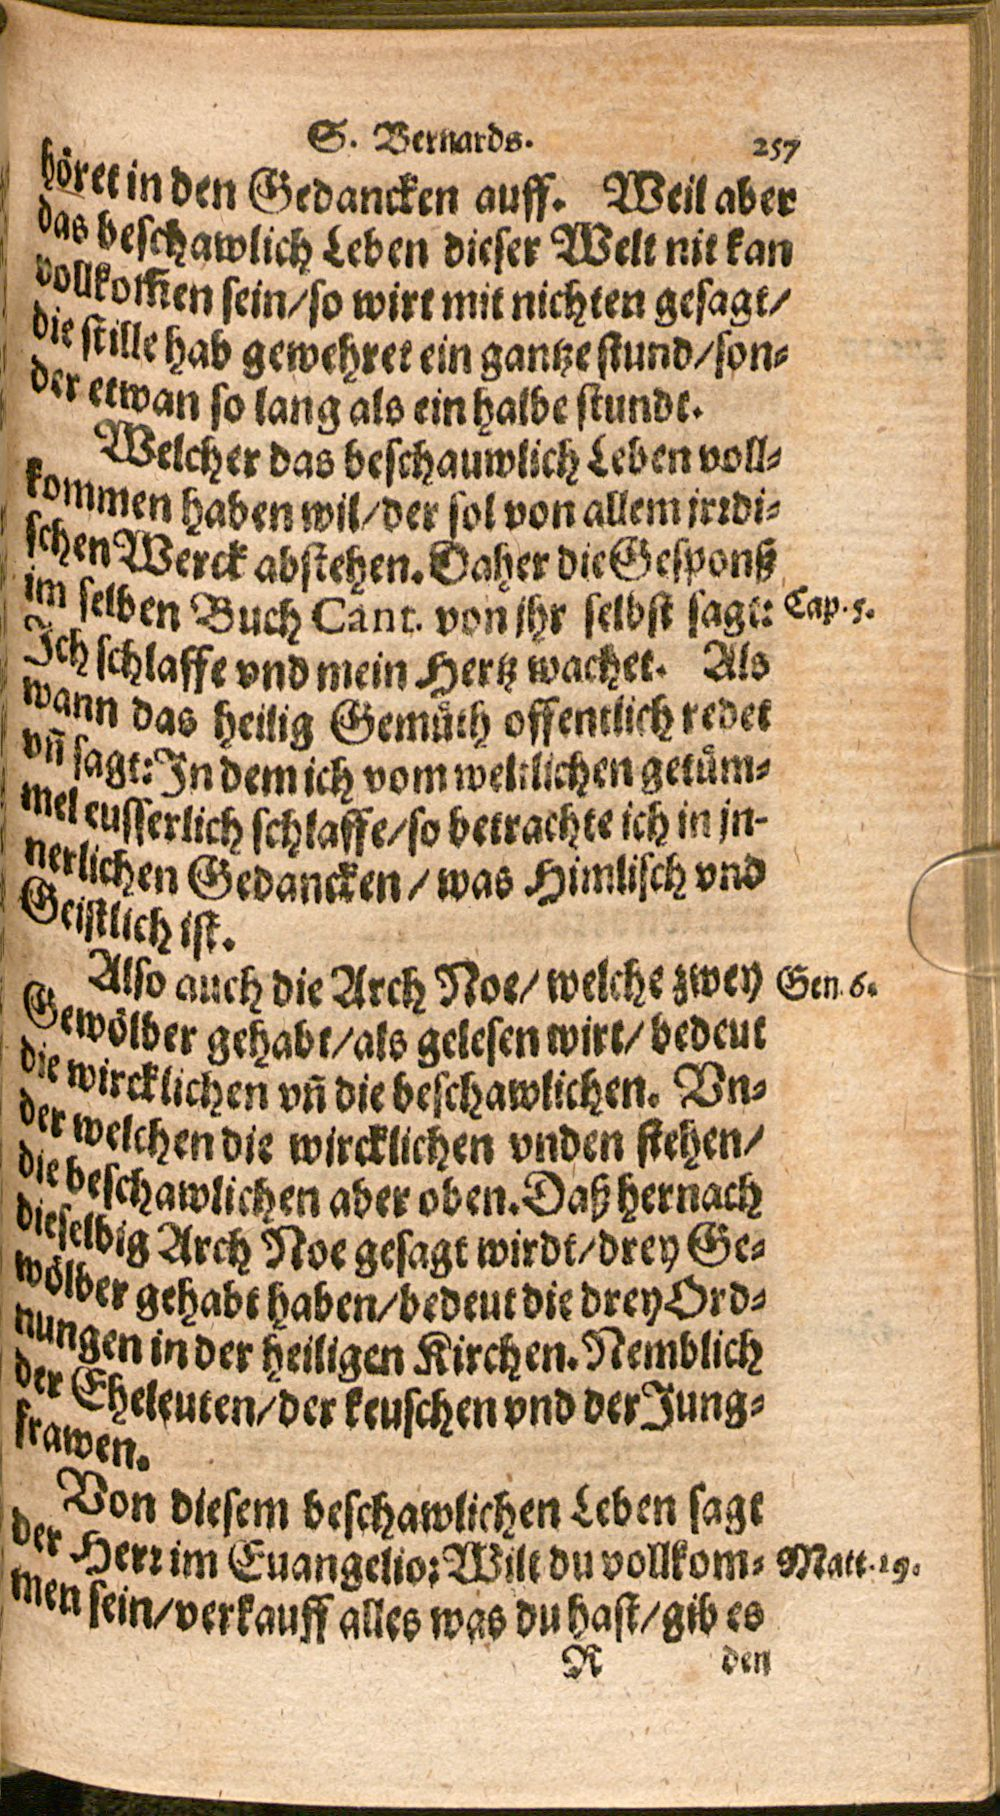 S. Bernards. 257
höret in den Gedancken auff. Weil aber
das beschawlich Leben dieser Welt nit kan
vollkom̃en sein/so wirt mit nichten gesagt/
die stille hab gewehret ein gantze stund/son⸗
der etwan so lang als ein halbe stundt.
Welcher das beschauwlich Leben voll⸗
kommen haben wil/der sol von allem jrꝛdi⸗
schen Werck abstehen. Daher die Gesponß
im selben Buch Cant. von jhr selbst sagt: Cap. 5.
Ich schlaffe vnd mein Hertz wachet. Als
wann das heilig Gemuͤth offentlich redet
vñ sagt: In dem ich vom weltlichen getuͤm⸗
mel eusserlich schlaffe/so betrachte ich in jn-
nerlichen Gedancken/was Himlisch vnd
Geistlich ist.
Also auch die Arch Noe/welche zwey Gen. 6.
Gewölber gehabt/als gelesen wirt/bedeut
die wircklichen vñ die beschawlichen. Vn⸗
der welchen die wircklichen vnden stehen/
die beschawlichen aber oben. Daß hernach
dieselbig Arch Noe gesagt wirdt/drey Ge⸗
wölber gehabt haben/bedeut die drey Ord⸗
nungen in der heiligen Kirchen. Nemblich
der Eheleuten/der keuschen vnd der Jung⸗
frawen.
Von diesem beschawlichen Leben sagt
der Herꝛ im Euangelio: Wilt du vollkom⸗ Matt. 19.
men sein/verkauff alles was du hast/gib es
R den